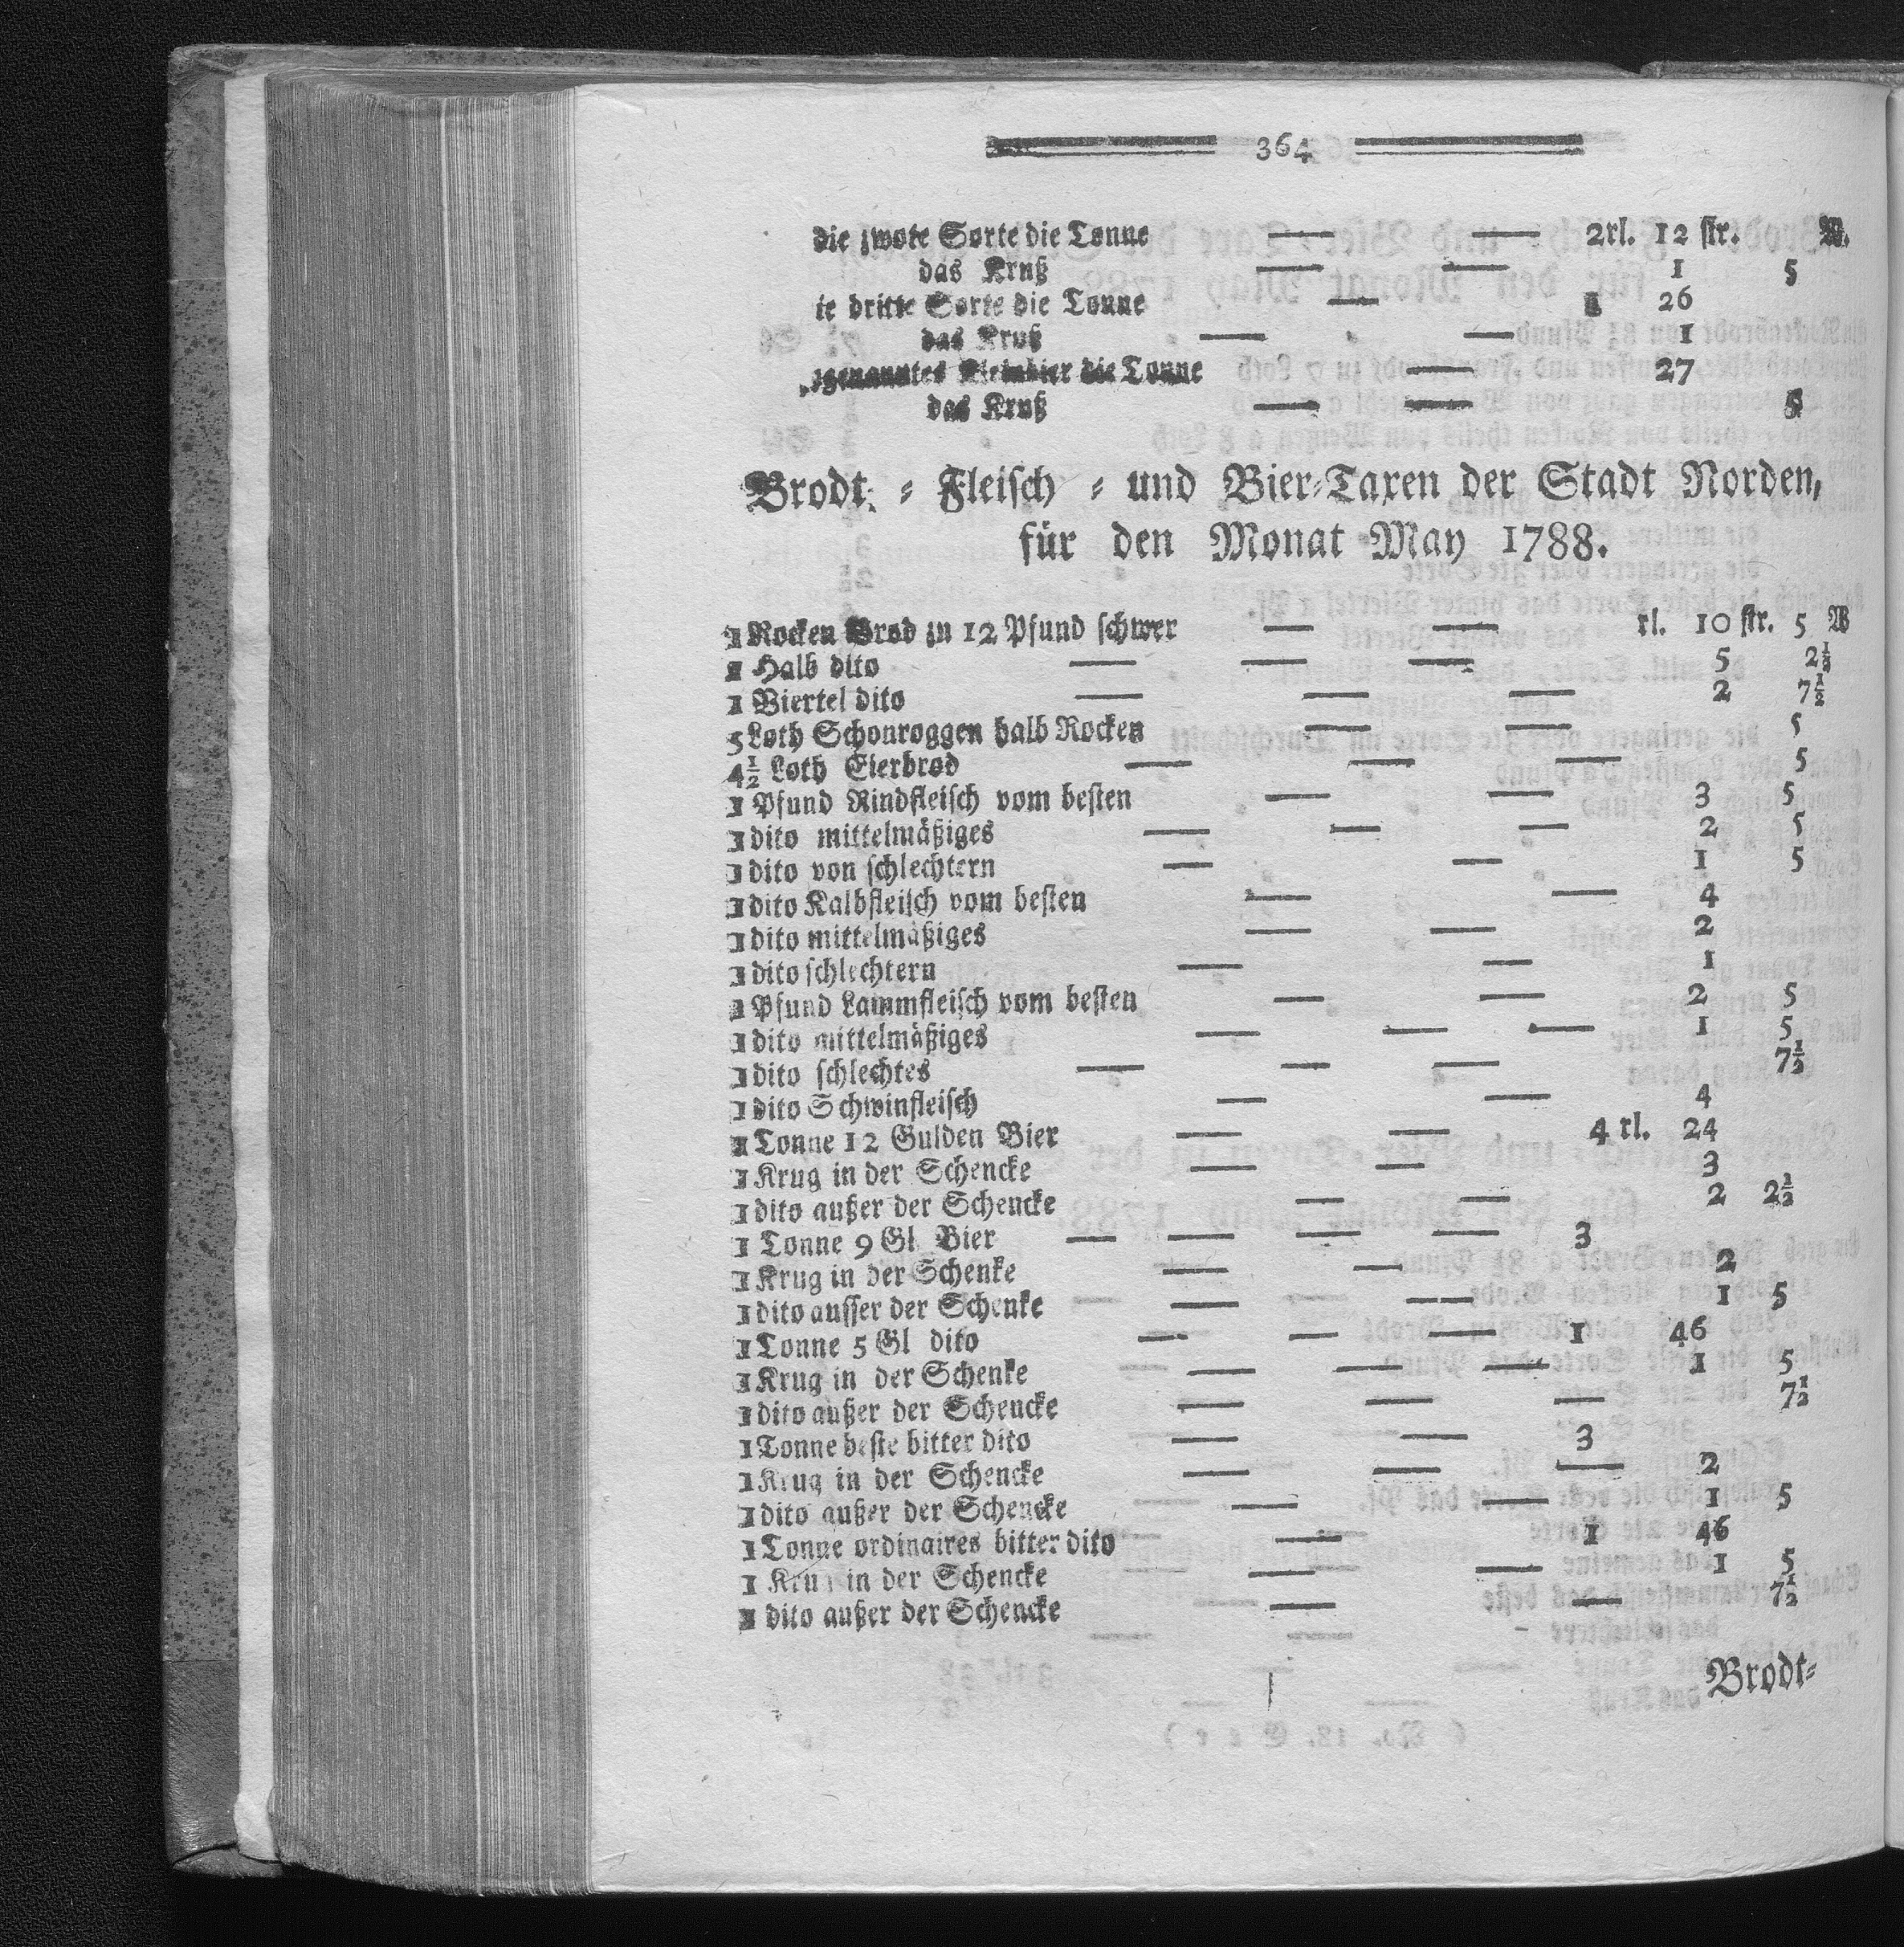 364
die zwote Sorte die Tonne — — 2rl. 12 str. W.
das Kruß — — 1 5
te dritte Sorte die Tonne — 1 26
das Kruß — — 1
genanntes Kleinbier die Tonne — 27
das Kruß — — 5
Brodt- Fleisch- und Bier-Taxen der Stadt Norden,
für den Monat May 1788.
1 Rocken Brod zu 12 Pfund schwer — — rl. 10 str. 5 W
1 Halb dito — — — 5 2½
1 Viertel dito — — — 2 7½
5 Loth Schonroggen halb Rocken — — 5
4½ Loth Eierbrod — — — 5
1 Pfund Rindfleisch vom besten — — 3 5
1 dito mittelmäßiges — — — 2 5
1 dito von schlechtern — — 1 5
1 dito Kalbfleisch vom besten — — 4
1 dito mittelmäßiges — — 2
1 dito schlechtern — — 1
1 Pfund Lammfleisch vom besten — — 2 5
1 dito mittelmäßiges — — — 1 5
1 dito schlechtes — — — 7½
1 dito Schwinfleisch — — 4
1 Tonne 12 Gulden Bier — — 4 rl. 24
1 Krug in der Schencke — — 3
1 dito außer der Schencke — — 2 2½
1 Tonne 9 Gl Bier — — — — 3
1 Krug in der Schenke — — 2
1 dito ausser der Schenke — — 1 5
1 Tonne 5 Gl dito — — — 1 46
1 Krug in der Schenke — — — 1 5
1 dito außer der Schencke — — — 7½
1 Tonne beste bitter dito — — 3
1 Krug in der Schencke — — — 2
1 dito außer der Schencke — — 1 5
1 Tonne ordinaires bitter dito — 1 46
1 Krug in der Schencke — — 1 5
1 dito außer der Schencke — — 7½
Brodt-